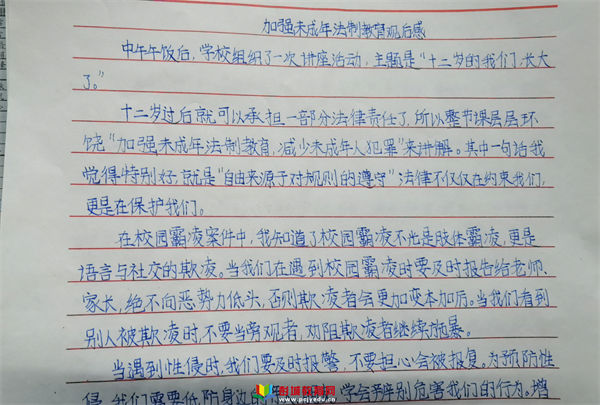 加强未成年法制教育观后感
中午午饭后,学校组织了一次讲座活动,主题是“十二岁的我们,长大
了。”
十二岁过后就可以承担一部分法律责任了,所以整节课层层环
饶“加强未成年法制教育,减少未成年人犯罪”来讲解。其中一句话我
觉得特别好,就是“自由来源于对规则的遵守”法律不仅仅在约束我们,
更是在保护我们。
在校园霸凌案件中,我知道了校园霸凌不光是肢体霸凌,更是
语言与社交的欺凌。当我们在遇到校园霸凌时要及时报告给老师、
家长,绝不向恶势力低头,否则欺凌者会更加变本加后。当我们看到
别人被欺凌时,不要当旁观者,劝阻欺凌者继续施暴。
当遇到性侵时,我们要及时报警,不要担心会被报复。为预防性
侵,我们需要低防身边的 学会辨别危害我们的行为。增
彭城教育网
www.pcjyedu.cn